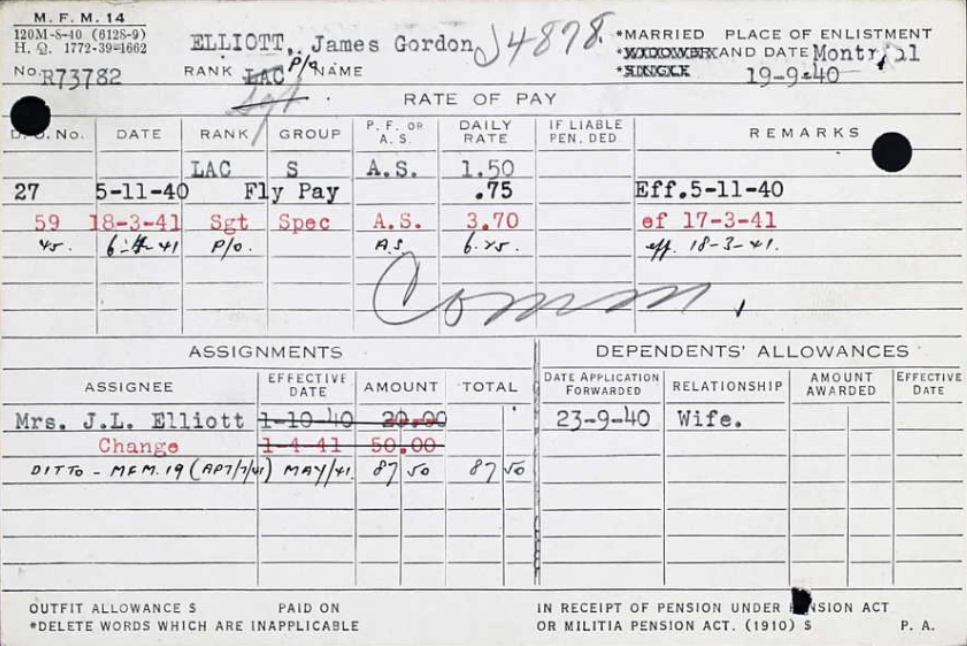 M. F. M. 14
120M-8-40 (6128-9)
H. Q. 1772-39-1662
ELLIOTT, James Gordon J4878.
*MARRIED PLACE OF ENLISTMENT
*WIDOWER AND DATE Montreal
*SINGLE 19-9-40
No. R73782 RANK LAC P/O NAME
Sgt
RATE OF PAY
D.O. No. DATE RANK GROUP P. F. OR A. S. DAILY RATE IF LIABLE PEN. DED REMARKS
LAC S A.S. 1.50
27 5-11-40 Fly Pay .75 Eff.5-11-40
59 18-3-41 Sgt Spec A.S. 3.70 ef 17-3-41
45. 6-4-41 P/O. A.S 6.25. eff. 18-3-41.
Comm.
ASSIGNMENTS DEPENDENTS' ALLOWANCES
ASSIGNEE EFFECTIVE DATE AMOUNT TOTAL DATE APPLICATION FORWARDED RELATIONSHIP AMOUNT AWARDED EFFECTIVE DATE
Mrs. J.L. Elliott 1-10-40 20.00 23-9-40 Wife.
Change 1-4-41 50.00
DITTO - MFM. 19 (AP7/7/41) MAY/41. 87 50 87 50
OUTFIT ALLOWANCE $ PAID ON IN RECEIPT OF PENSION UNDER NSION ACT
*DELETE WORDS WHICH ARE INAPPLICABLE OR MILITIA PENSION ACT. (1910) $ P. A.